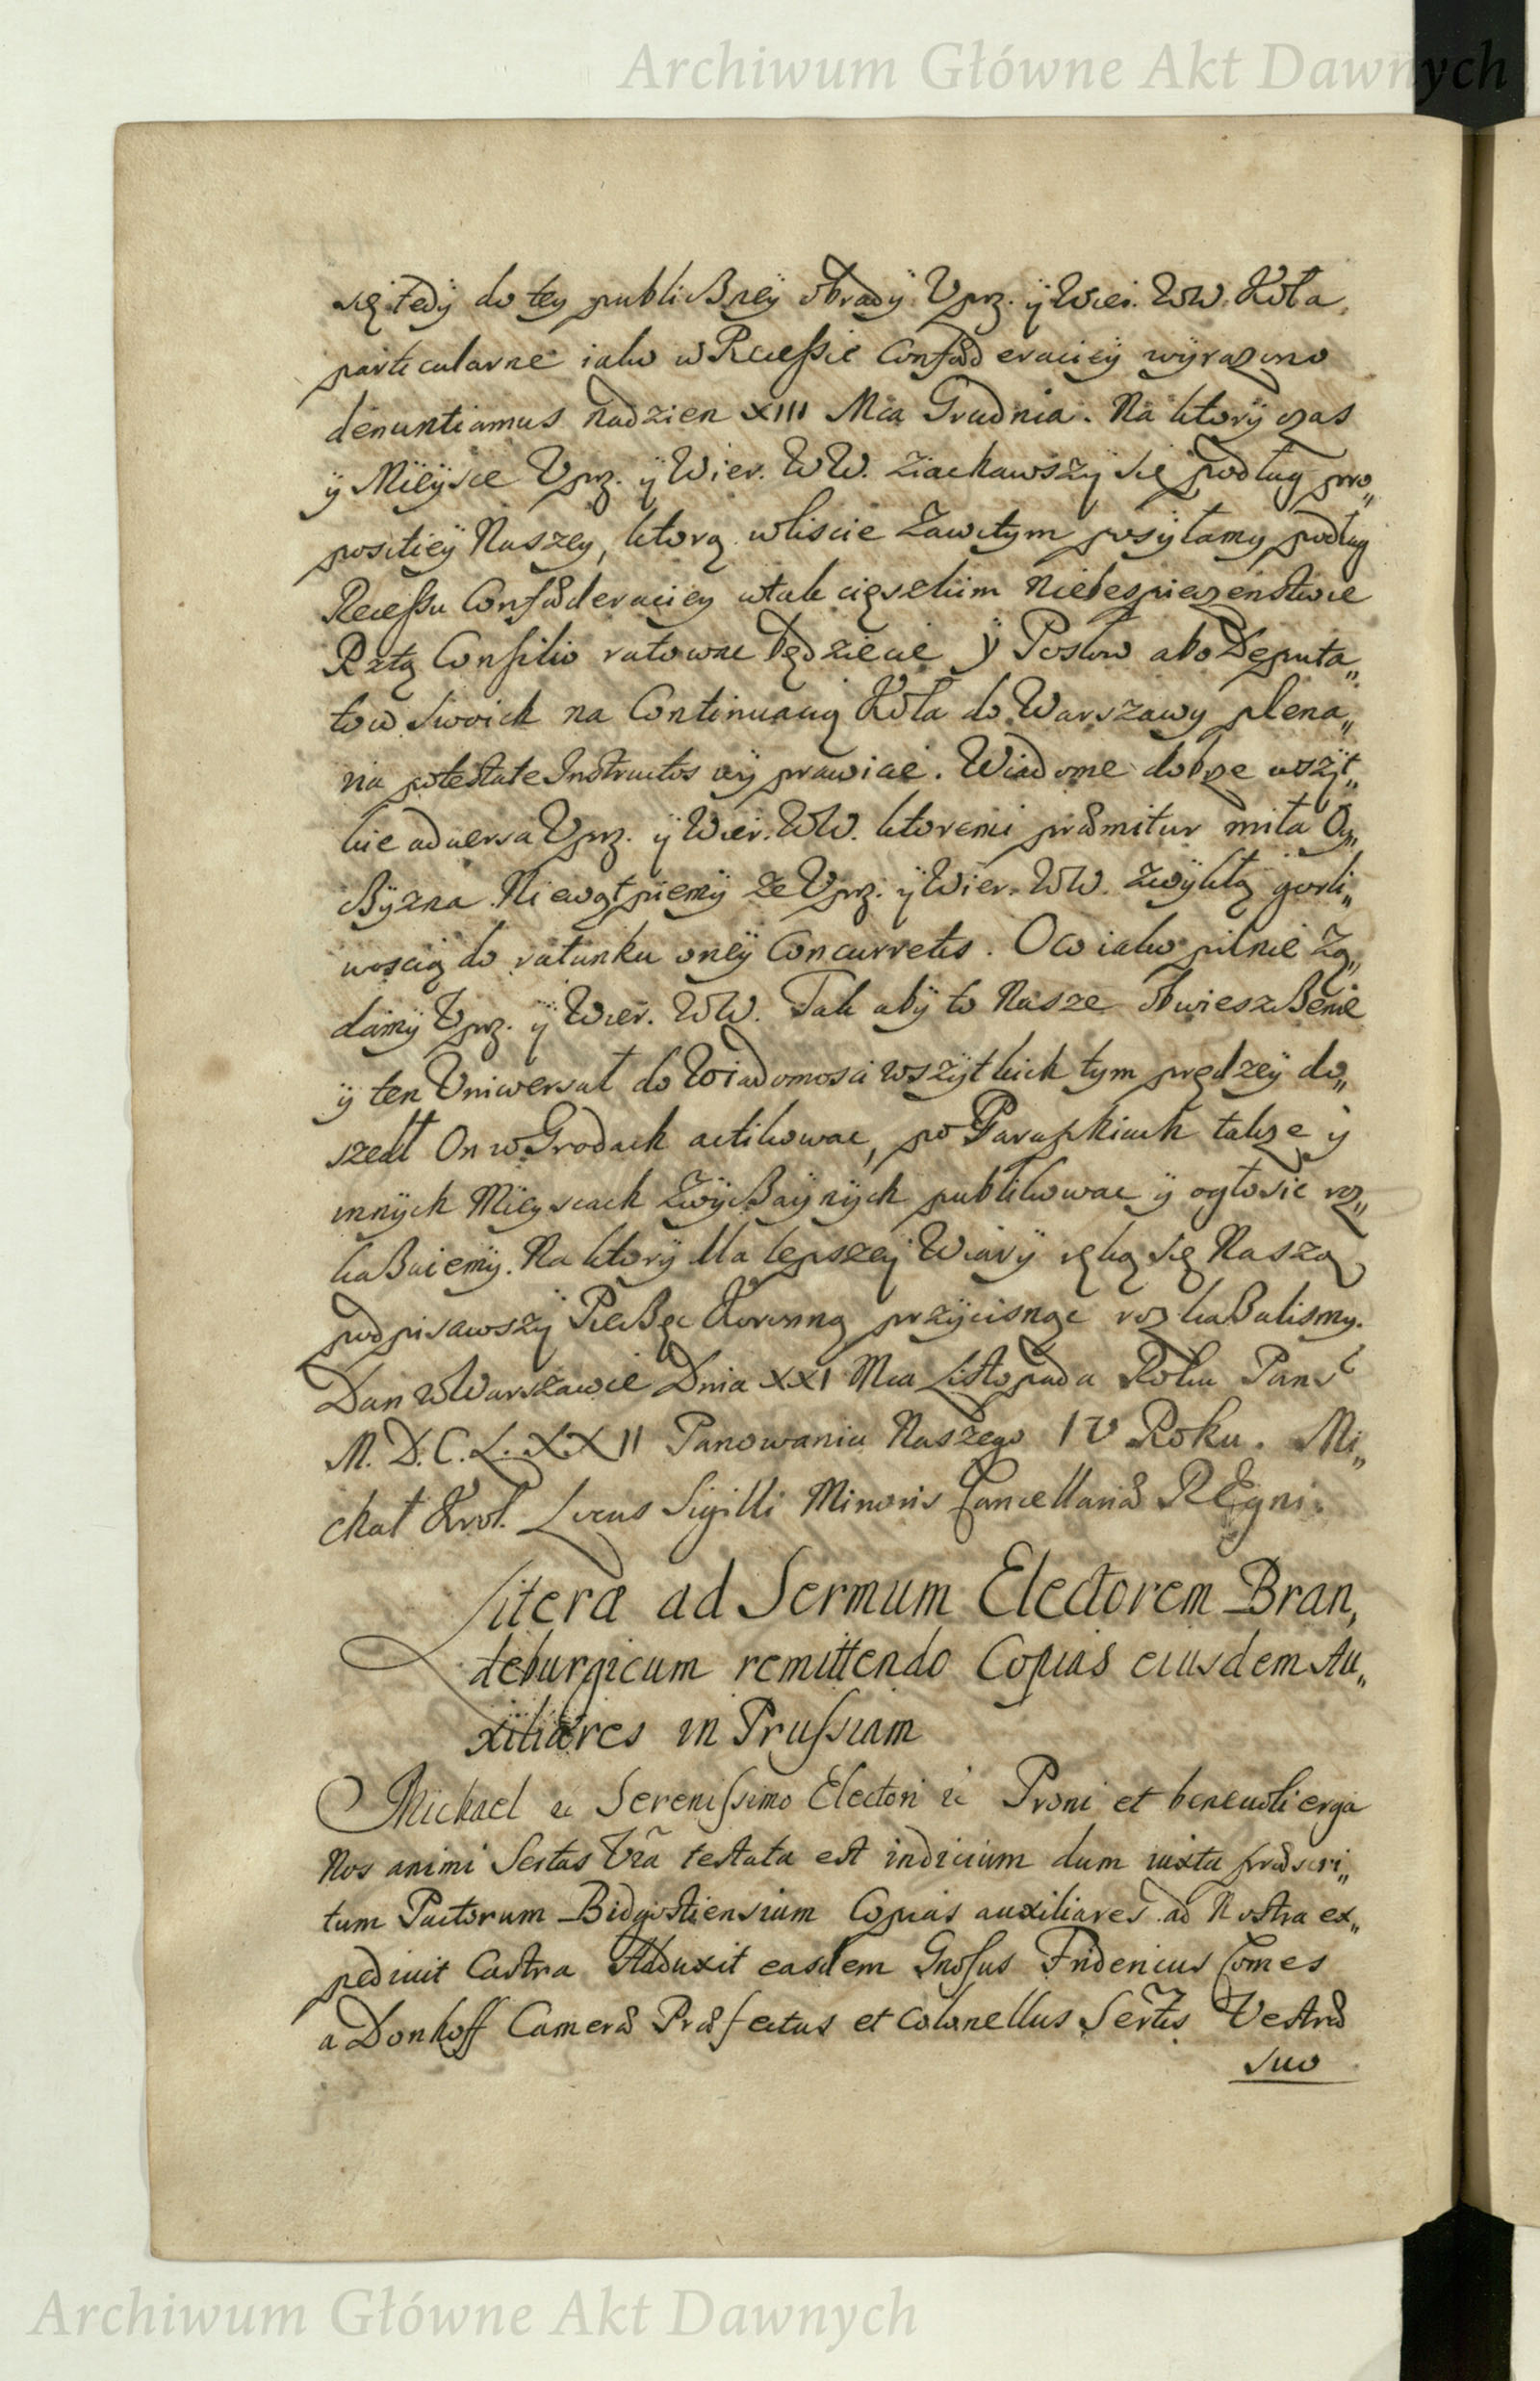 Archiwum Główne Akt Dawnych
się tedÿ do teÿ publiczneÿ obradÿ Uprz. ÿ Wier. WW. Koła,
particularne iako w Recessie Confœderacieÿ wÿrazono
denuntiamus nadzien XIII Mca Grudnia. Na ktorÿ czas
ÿ Mieÿsce Uprz. ÿ Wier. WW. ziachawszÿ się podług pro„
positieÿ Naszey, ktorą w liscie Zawitym posÿłamy podług
Recessu Confœderacieÿ w tak cięszkim Niebespieczenstwie
Rztą Consilio ratowac będziecie ÿ Posłow abo Deputa„
tow Swoich na Continuacią Koła do Warszawy plena„
ria potestate Instructos wÿprawicie. Wiadome dobrze wszÿt„
kie adversa Uprz. ÿ Wier. WW. ktoremi præmitur miła Oy„
czÿzna. Niewątpiemÿ ze Uprz. ÿ Wier. WW. zwÿkłą gorli„
woscią do ratunku oneÿ Concurretis. O co iako pilnie Zą„
damÿ Uprz. ÿ Wier. WW. Tak abÿ to Nasze obwieszczenie
ÿ ten Uniwersał do Wiadomosci wszÿtkich tym prędzeÿ do„
szedł On w Grodach actikowac, po Paraphiach takze ÿ
innÿch Mieÿscach Zwÿczaÿnÿch publikowac ÿ ogłosic roz„
kazuiemÿ. Na ktorÿ dla lepszeÿ Wiarÿ ręką się Naszą
podpisawszÿ Pieczęc Koronną przÿcisnąc rozkazalismy.
Dan w Warszawie Dnia XXI Mca Listopada Roku Pansk
M. D. C. L. XX II Panowania Naszego IV Roku. Mi„
chał Krol. Locus Sigilli Minoris Cancellariæ REgni.
Literæ ad Sermum Electorem Bran„
deburgicum remittendo Copias eiusdem Au„
xiliares in Prussiam
Michael &c Serenissimo Electori &c Proni et benevoli erga
Nos animi Sertas Vrã testata est indicium dum iuxta præscri„
tum Pactorum Bidgostiensium Copias auxiliares ad Nostra ex„
pedivit Castra Adduxit easdem Gnosus Fridericus Comes
a Donhoff Cameræ Præfectus et Colonellus Sertis Vestræ
suo
Archiwum Główne Akt Dawnych